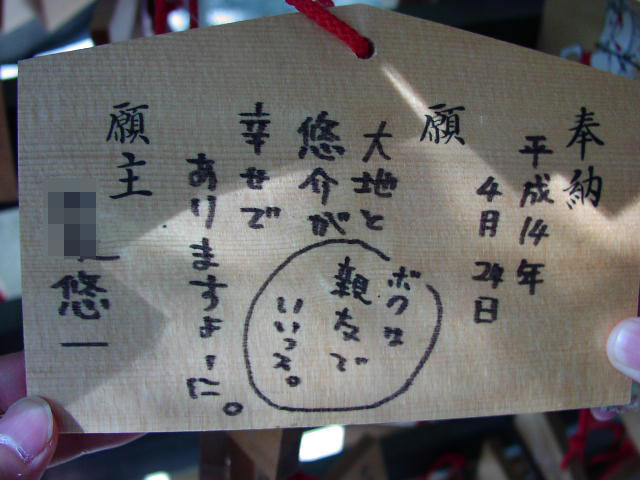 奉納
平成14年
4月24日
願
大地と
悠介が
幸せで
ありますよーに。
ボクは
親友で
いいっス。
願主
悠一